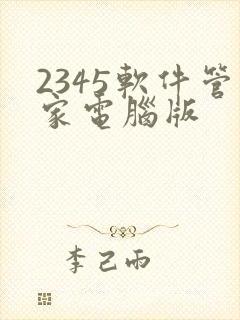 2345軟件管
家電腦版
李己雨